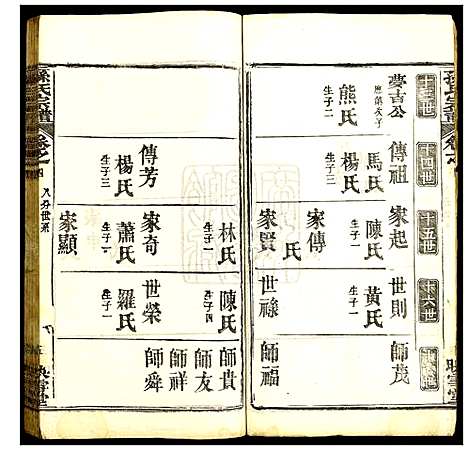 孫氏宗譜
卷之
十三世
十四世
十五世
十六世
映雪堂
夢吉公
熊氏
生子二
傳祖
馬氏
生子二
家起
陳氏
生子一
世則
黃氏
生子一
師茂
家傳
氏
家賢
世祿
師福
林氏
生子二
陳氏
生子四
師貴
師友
師祥
傳芳
楊氏
生子三
家奇
蕭氏
生子一
世榮
羅氏
生子一
師舜
家顯
孫氏宗譜
卷之四
八分世系
映雪堂